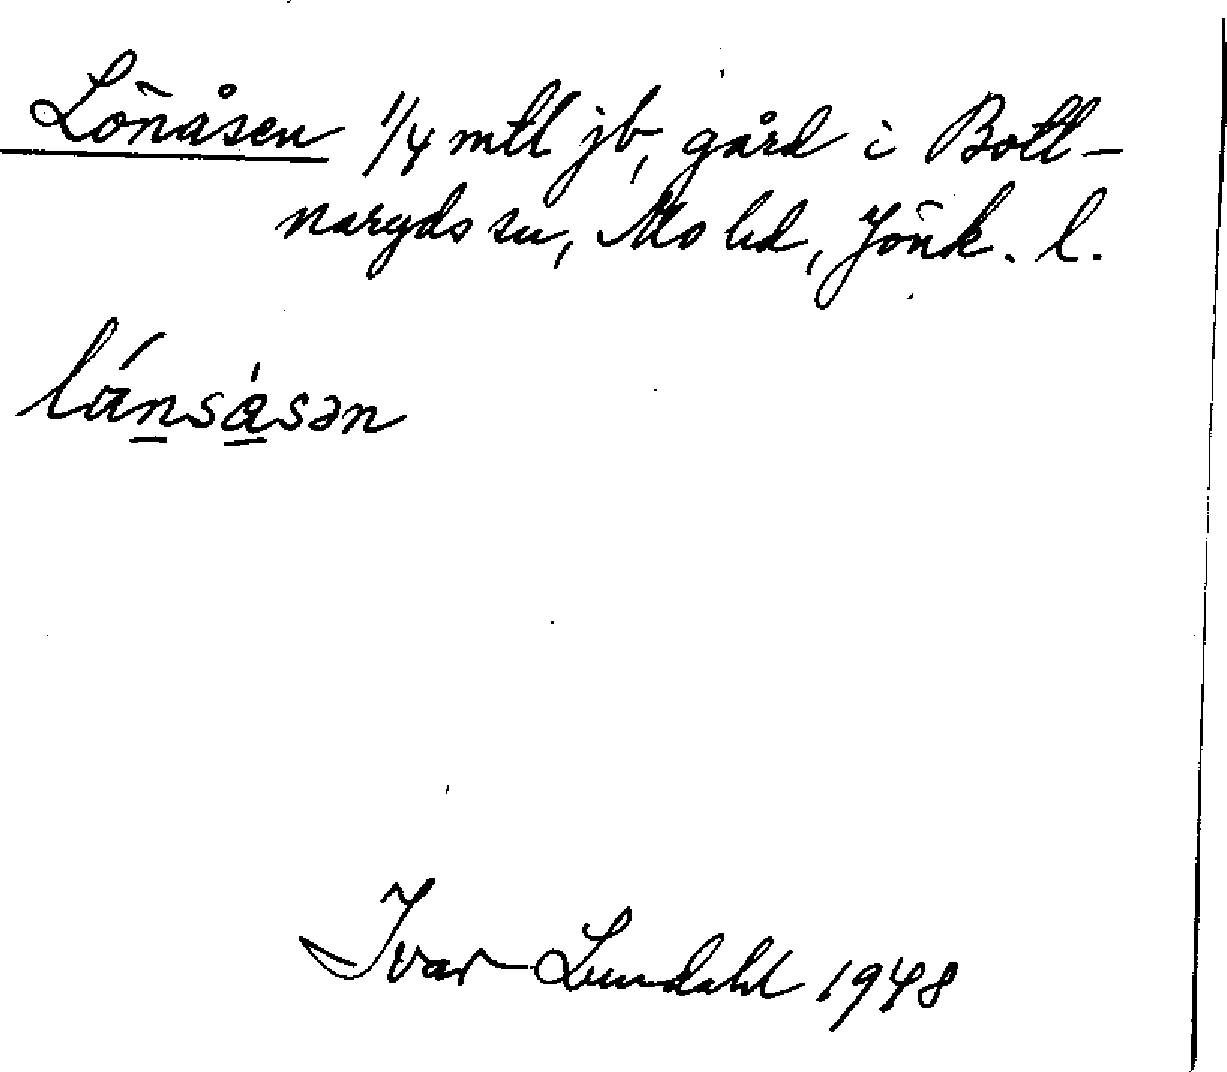 Lönåsen 1/4 mtl jb, gård i Bott-
naryds sn, Mo hd, Jönk. l.
lǿnsåsən
Ivar Lundahl 1948